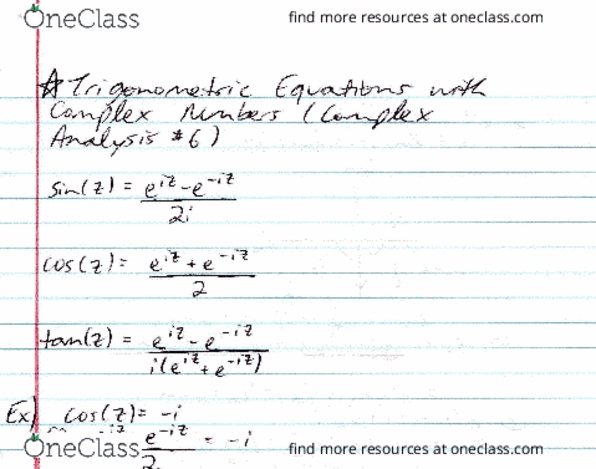 OneClass
find more resources at oneclass.com
☆Trigonometric Equations with
Complex Numbers (Complex
Analysis #6)
sin(z) = (e^{iz} - e^{-iz}) / 2i
cos(z) = (e^{iz} + e^{-iz}) / 2
tan(z) = (e^{iz} - e^{-iz}) / i(e^{iz} + e^{-iz})
Ex) cos(z) = -i
e^{-iz} / 2 = -i
OneClass
find more resources at oneclass.com